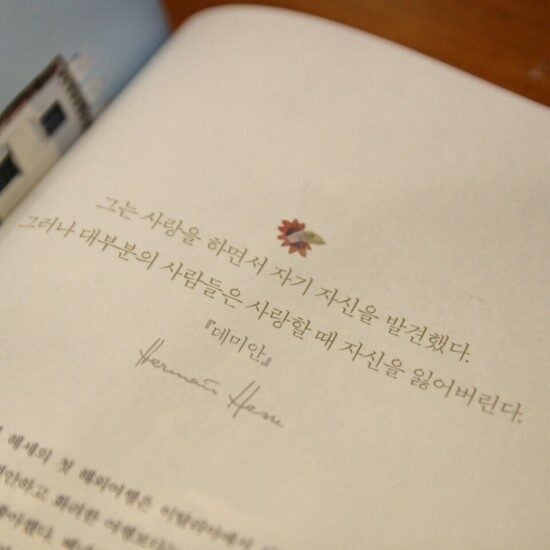 그는 사랑을 하면서 자기 자신을 발견했다.
그러나 대부분의 사람들은 사랑할 때 자신을 잃어버린다.
『데미안』
Hermann Hesse
헤세의 첫 해외여행은 이탈리아에서
하고 화려한 여행보다는